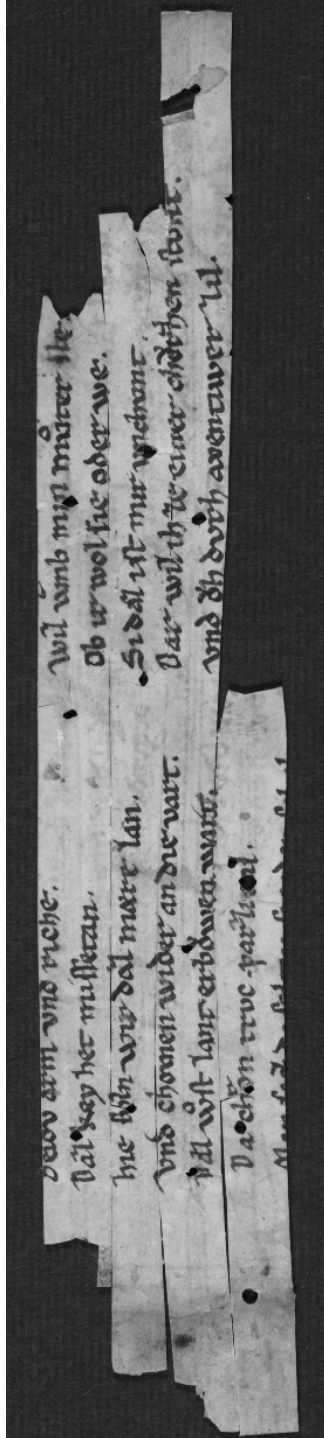 arm vnd riche.
Daz kay het missetan.
hie svln wir daz mære lan.
vnd chomen wider an die vart.
daz wͦst lant erbowen wart.
Da chron trvc parzifal.
wil vmb min mvͦter ste.
Ob ir wol sie oder we.
Si daz ist mir vnchvnt.
Dar wil ich ze einer chvrtzen stvnt.
vnd oͮch dvrch aventiwer zil.